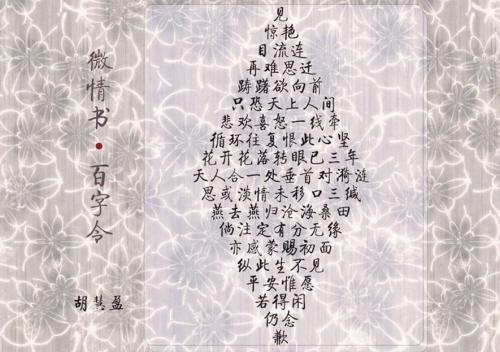 微情书·百字令
胡慧盈
见
惊艳
目流连
再难思迁
踌躇欲向前
只恐天上人间
悲欢喜怒一线牵
循环往复恨此心坚
花开花落转眼已三年
天人合一处垂首对涟漪
思或淡情未移口三缄
燕去燕归沧海桑田
倘注定有分无缘
亦感蒙赐初面
纵此生不见
平安惟愿
若得闲
仍念
歉